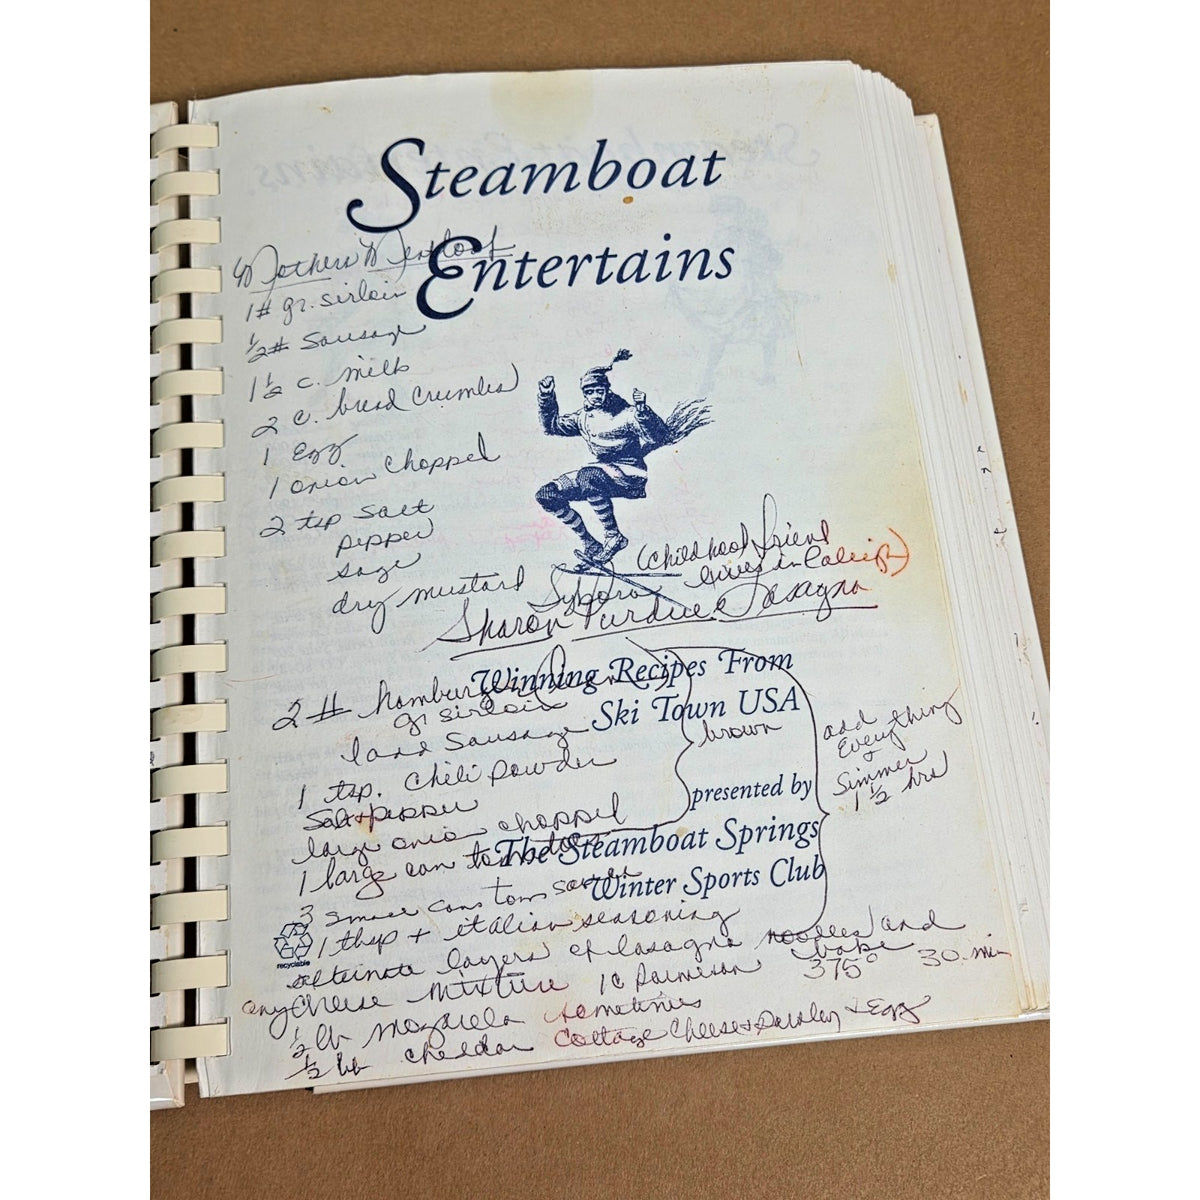 Steamboat
Entertains
Mothers Meatloaf
1# gr. sirloin
1/2# Sausage
1 1/2 c. milk
2 c. bread crumbles
1 Egg
1 onion chopped
2 tsp salt
pepper
sage
dry mustard
(childhood friend
lives in Calif)
Sharon Purdue Lasagna
Winning Recipes From
Ski Town USA
2 # hamburg
gr sirloin
Sausage
brown
1 tsp. Chili Powder
Salt + pepper
large onion chopped
1 large can
3 small cans tom sauce
1 tbsp + italian seasoning
add
Everything
+
Simmer
1 1/2 hrs
presented by
The Steamboat Springs
Winter Sports Club
recyclable
alternate layers of lasagna noodles and
any cheese mixture 1 c Parmesan bake
375° 30 min
1/2 lb mozarela sometimes
1/2 lb chedar cottage cheese + Parsley + Egg